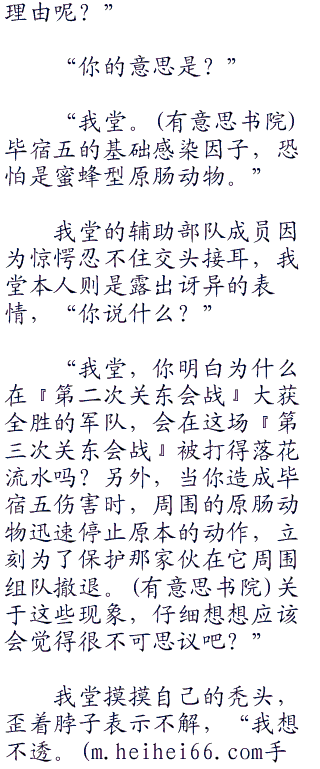 理由呢？”
“你的意思是？”
“我堂。(有意思书院)
毕宿五的基础感染因子，恐
怕是蜜蜂型原肠动物。”
我堂的辅助部队成员因
为惊愕忍不住交头接耳，我
堂本人则是露出讶异的表
情，“你说什么？”
“我堂，你明白为什么
在『第二次关东会战』大获
全胜的军队，会在这场『第
三次关东会战』被打得落花
流水吗？另外，当你造成毕
宿五伤害时，周围的原肠动
物迅速停止原本的动作，立
刻为了保护那家伙在它周围
组队撤退。(有意思书院)关
于这些现象，仔细想想应该
会觉得很不可思议吧？”
我堂摸摸自己的秃头，
歪着脖子表示不解，“我想
不透。(m.heihei66.com手